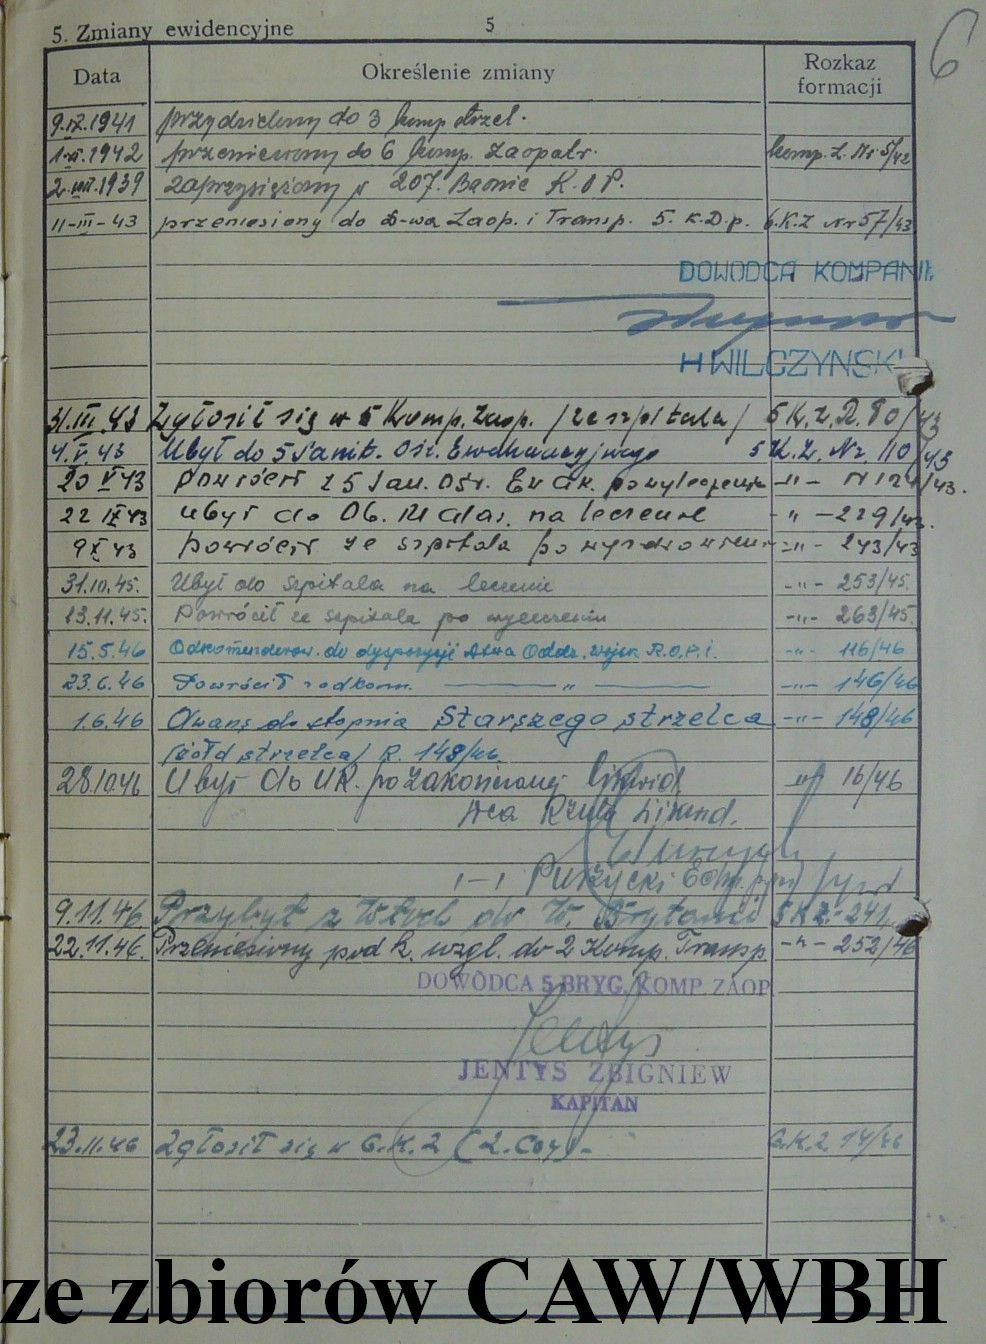 5. Zmiany ewidencyjne 5 6
Data Określenie zmiany Rozkaz formacji
9.IX.1941 przydzielony do 3 komp strzel.
1.VI.1942 przeniesiony do 6 komp. Zaopatr. komp. Z. Nr 5/42
2.VIII.1939 zaprzysiężony w 207. Baonie K.O.P.
11-III-43 przeniesiony do D-wa Zaop. i Transp. 5. K.D.P. 6.K.Z Nr 57/43
DOWÓDCA KOMPANII:
H WILCZYŃSKI
31.III.43 Zgłosił się w 5 Komp. Zaop. /ze szpitala/ 5 K. Z. R. 80/43
4.V.43 Ubył do 5 Sanit. Ośr. Ewakuacyjnego 5 K.Z. Nr 110/43
20 V 43 Powrócił z 5 San. Ośr. Ewak. po wyleczeniu -"- N 124/43.
22 IX 43 Ubył do Ob. na leczenie -"- 229/43.
9 X 43 powrócił ze szpitala po wyzdrowieniu -"- 243/43
31.10.45. Ubył do szpitala na leczenie -"- 253/45.
13.11.45. Powrócił ze szpitala po wyleczeniu -"- 263/45.
15.5.46 Odkomenderow. do dyspozycji Oddz. R.O.P.i. -"- 116/46
23.6.46 Powrócił z odkom. — " — -"- 146/46
1.6.46 Awans do stopnia Starszego strzelca -"- 148/46
/żołd strzelca/ R. 148/46
28.10.46 Ubył do UK. po zakończonej likwid -"- 16/46
Dca Rzutu Likwid.
/-/ Purzycki
9.11.46. Przybył z Włoch do W. Brytanii 5 K Z - 241
22.11.46. Przeniesiony pod k. wzgl. do 2 Komp. Transp. -"- 252/46
DOWÓDCA 5 BRYG. KOMP. ZAOP.
JENTYS ZBIGNIEW
KAPITAN
23.11.46 Zgłosił się w G.K.2 (2.Coy) - G.K.2 14/46
ze zbiorów CAW/WBH